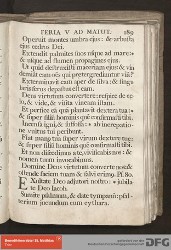 FERIA V AD MATUT. 289
Operuit montes umbra ejus: & arbusta
ejus cedros Dei.
Extendit palmites suos usque ad mare:
& usque ad flumen propagines ejus.
Ut quid destruxisti maceriam ejus: & vin
demiant eam omnes qui prætergrediuntur viam?
Exterminavit eam aper de silva: & singu
laris ferus depastus est eam.
Deus virtutum convertere: respice de cœ
lo, & vide, & visita vineam istam.
Et perfice eam quam plantavit dextera tua:
& super filium hominis quem confirmasti tibi.
Incensa igni, & suffossa: ab increpatio
ne vultus tui peribunt.
Fiat manus tua super virum dexteræ tuæ:
& super filium hominis quem confirmasti tibi.
Et non discedimus a te, vivificabis nos: &
nomen tuum invocabimus.
Domine Deus virtutum converte nos: &
ostende faciem tuam & salvi erimus. Ps. 80.
Exultate Deo adjutori nostro: jubila
te Deo Jacob.
Sumite psalmum, & date tympanum: psal
terium jucundum cum cythara.
DFG